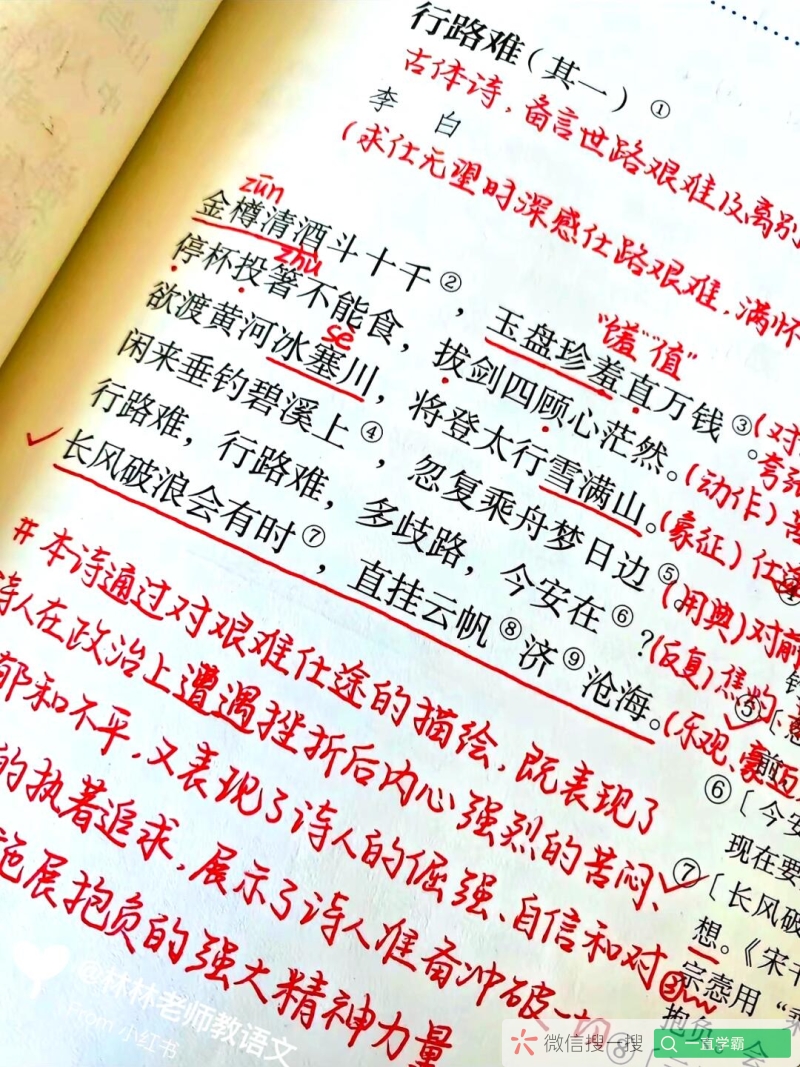 行路难（其一）①
古体诗，备言世路艰难及离别
李 白
（求仕无望时深感仕路艰难，满怀
zūn
金樽清酒斗十千②，玉盘珍羞直万钱③。
zhù
"馐""值"
（对
夸张
停杯投箸不能食，拔剑四顾心茫然。
（动作）苦
sè
欲渡黄河冰塞川，将登太行雪满山。
（象征）仕途
闲来垂钓碧溪上④，忽复乘舟梦日边⑤。
（用典）对前
行路难，行路难，多歧路，今安在⑥？
（反复）焦灼
长风破浪会有时⑦，直挂云帆⑧济⑨沧海。
（乐观、豪迈
#本诗通过对艰难仕途的描绘，既表现了
诗人在政治上遭遇挫折后内心强烈的苦闷、
郁和不平，又表现了诗人的倔强、自信和对
的执着追求，展示了诗人准备冲破一切
施展抱负的强大精神力量
④
⑤
前
⑥〔今安
现在要
⑦〔长风破
想。《宋书
宗悫用“乘
抱负。会
⑧
@林林老师教语文
From 小红书
微信搜一搜
一直学霸